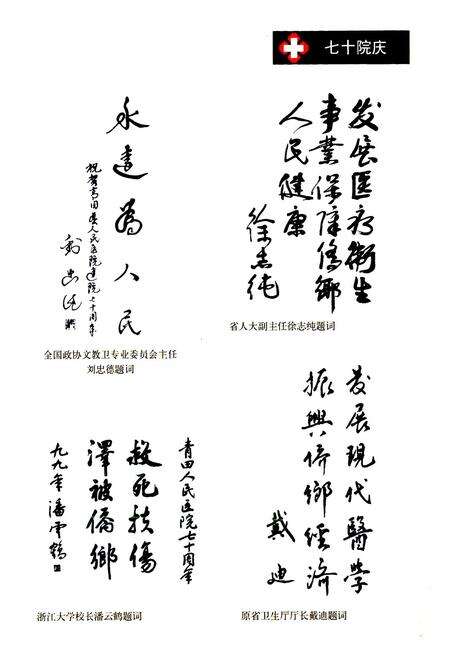 七十院庆
永远为人民
祝贺青田县人民医院建院七十周年
刘忠德
全国政协文教卫专业委员会主任
刘忠德题词
发展医疗衛生
事業保障僑鄉
人民健康
徐志纯
省人大副主任徐志纯题词
青田人民医院七十周年
救死扶傷
澤被僑鄉
九九年潘雲鶴
浙江大学校长潘云鹤题词
發展現代醫学
振興侨鄉经济
戴迪
原省卫生厅厅长戴迪题词